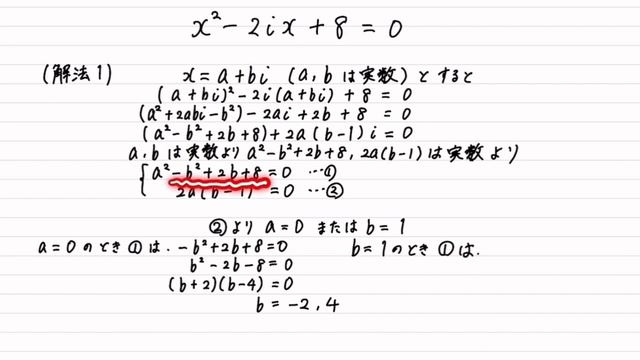 x² - 2ix + 8 = 0
(解法1) x = a + bi (a, b は実数) とすると
(a + bi)² - 2i(a + bi) + 8 = 0
(a² + 2abi - b²) - 2ai + 2b + 8 = 0
(a² - b² + 2b + 8) + 2a(b - 1)i = 0
a, b は実数より a² - b² + 2b + 8, 2a(b-1) は実数より
{ a² - b² + 2b + 8 = 0 … ①
2a(b - 1) = 0 … ②
②より a = 0 または b = 1
a = 0 のとき ①は. -b² + 2b + 8 = 0 b = 1 のとき ①は.
b² - 2b - 8 = 0
(b + 2)(b - 4) = 0
b = -2, 4